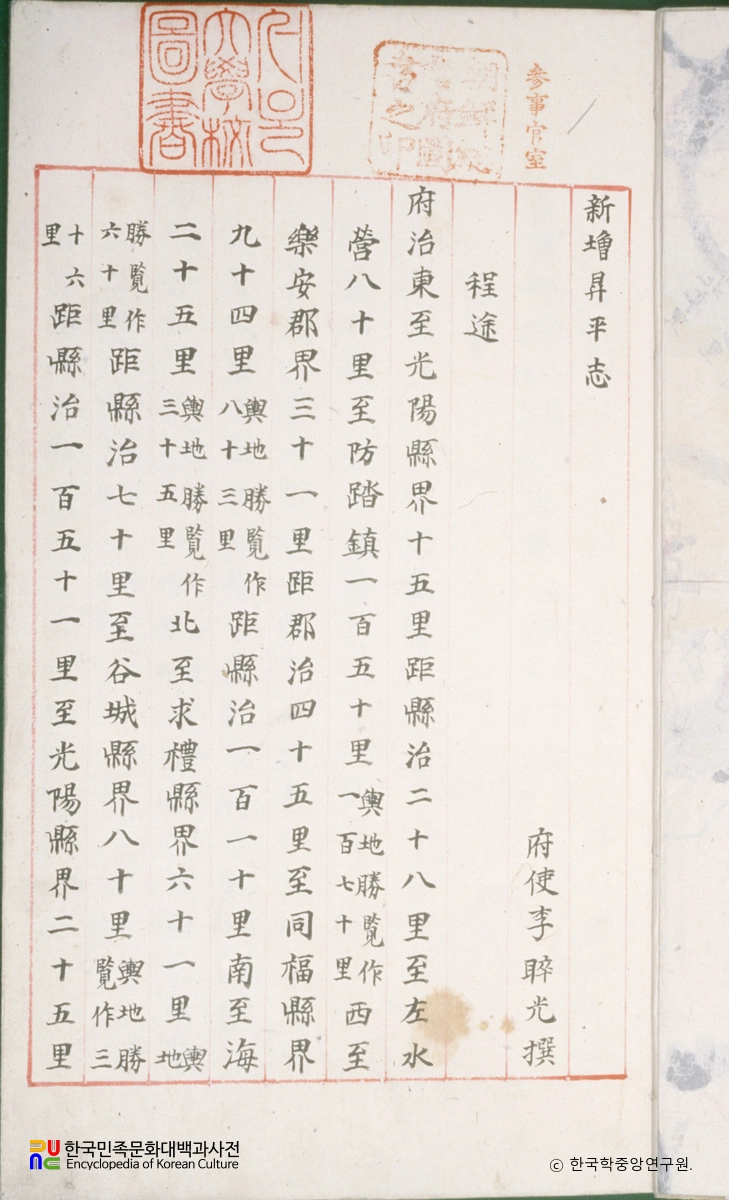 参事官室
朝鮮總
督府圖
書之印
서울
大學校
圖書
新增昇平志
府使李睟光撰
程途
府治東至光陽縣界十五里距縣治二十八里至左水
營八十里至防踏鎮一百五十里輿地勝覽作一百七十里西至
樂安郡界三十一里距郡治四十五里至同福縣界
九十四里輿地勝覽作八十三里距縣治一百一十里南至海
二十五里輿地勝覽作三十五里北至求禮縣界六十一里輿地
勝覽作六十里距縣治七十里至谷城縣界八十里輿地勝覽作三
十六里距縣治一百五十一里至光陽縣界二十五里
한국민족문화대백과사전
Encyclopedia of Korean Culture
ⓒ 한국학중앙연구원.